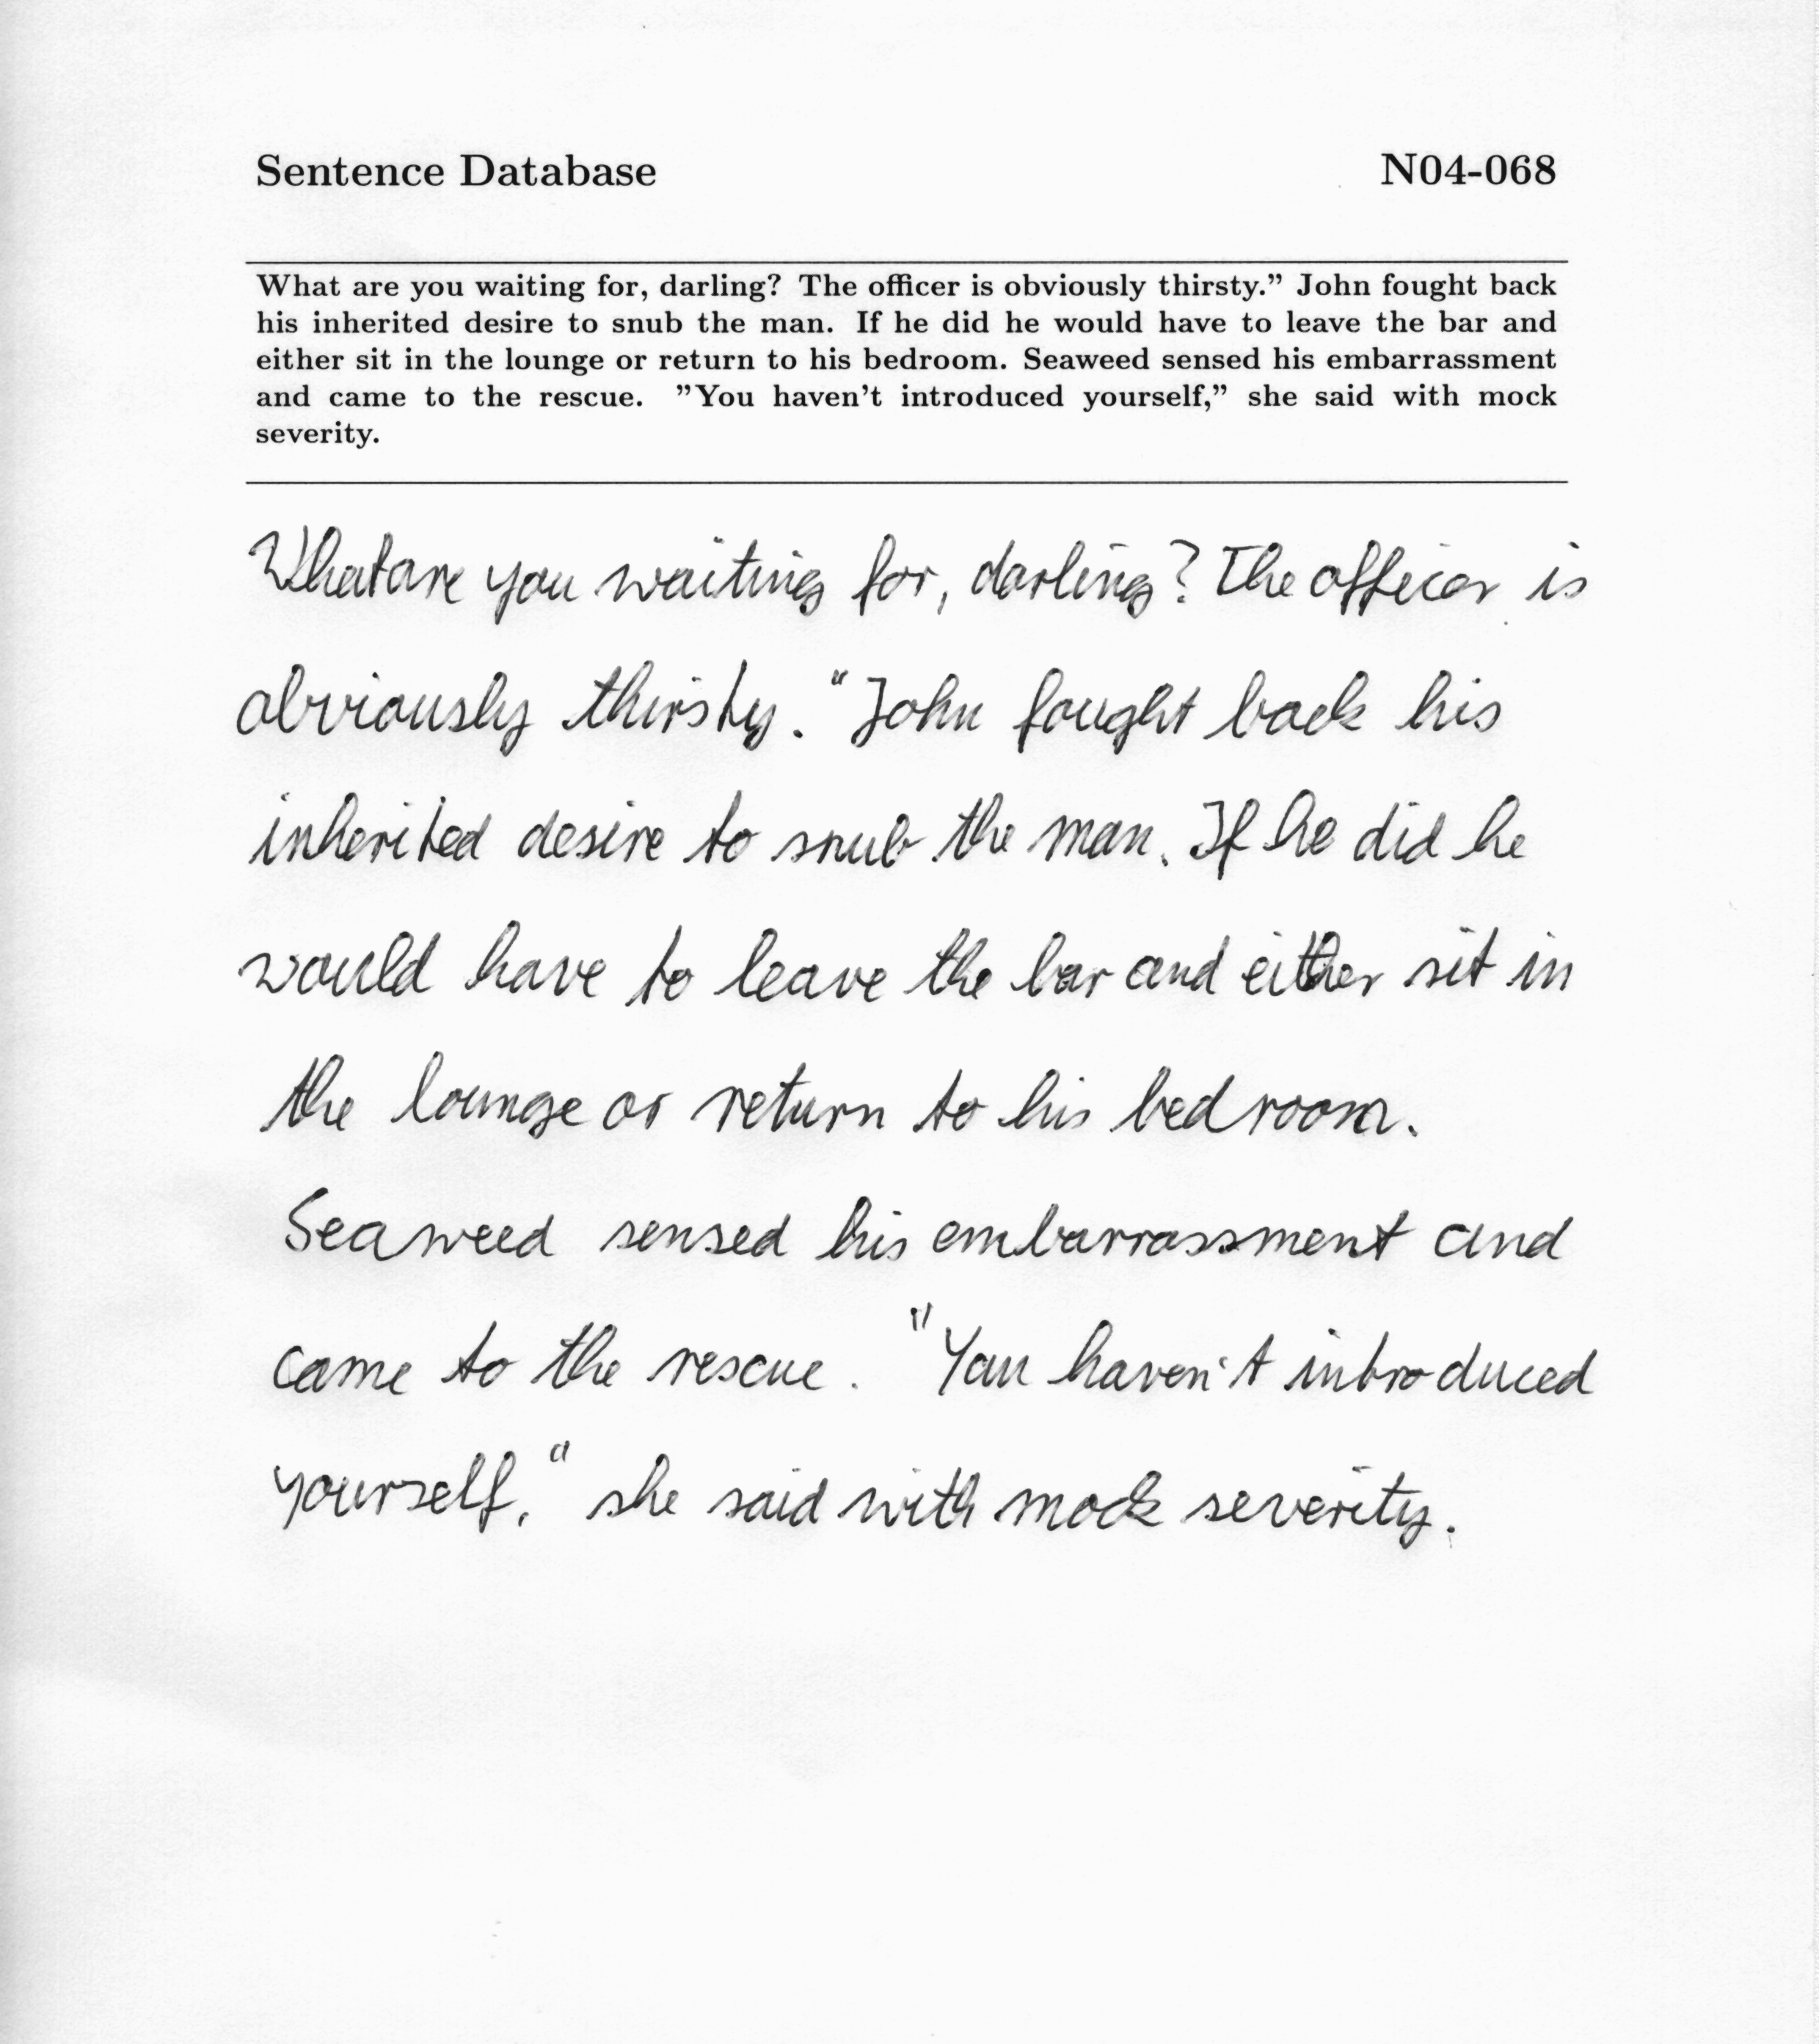 Sentence Database N04-068
What are you waiting for, darling? The officer is obviously thirsty.” John fought back
his inherited desire to snub the man. If he did he would have to leave the bar and
either sit in the lounge or return to his bedroom. Seaweed sensed his embarrassment
and came to the rescue. ”You haven’t introduced yourself,” she said with mock
severity.
What are you waiting for, darling? The officer is
obviously thirsty. “John fought back his
inherited desire to snub the man. If he did he
would have to leave the bar and either sit in
the lounge or return to his bedroom.
Seaweed sensed his embarrassment and
came to the rescue. "You haven't introduced
yourself," she said with mock severity.